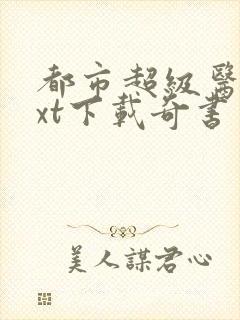 都市超級醫
xt下載奇書
美人謀君心